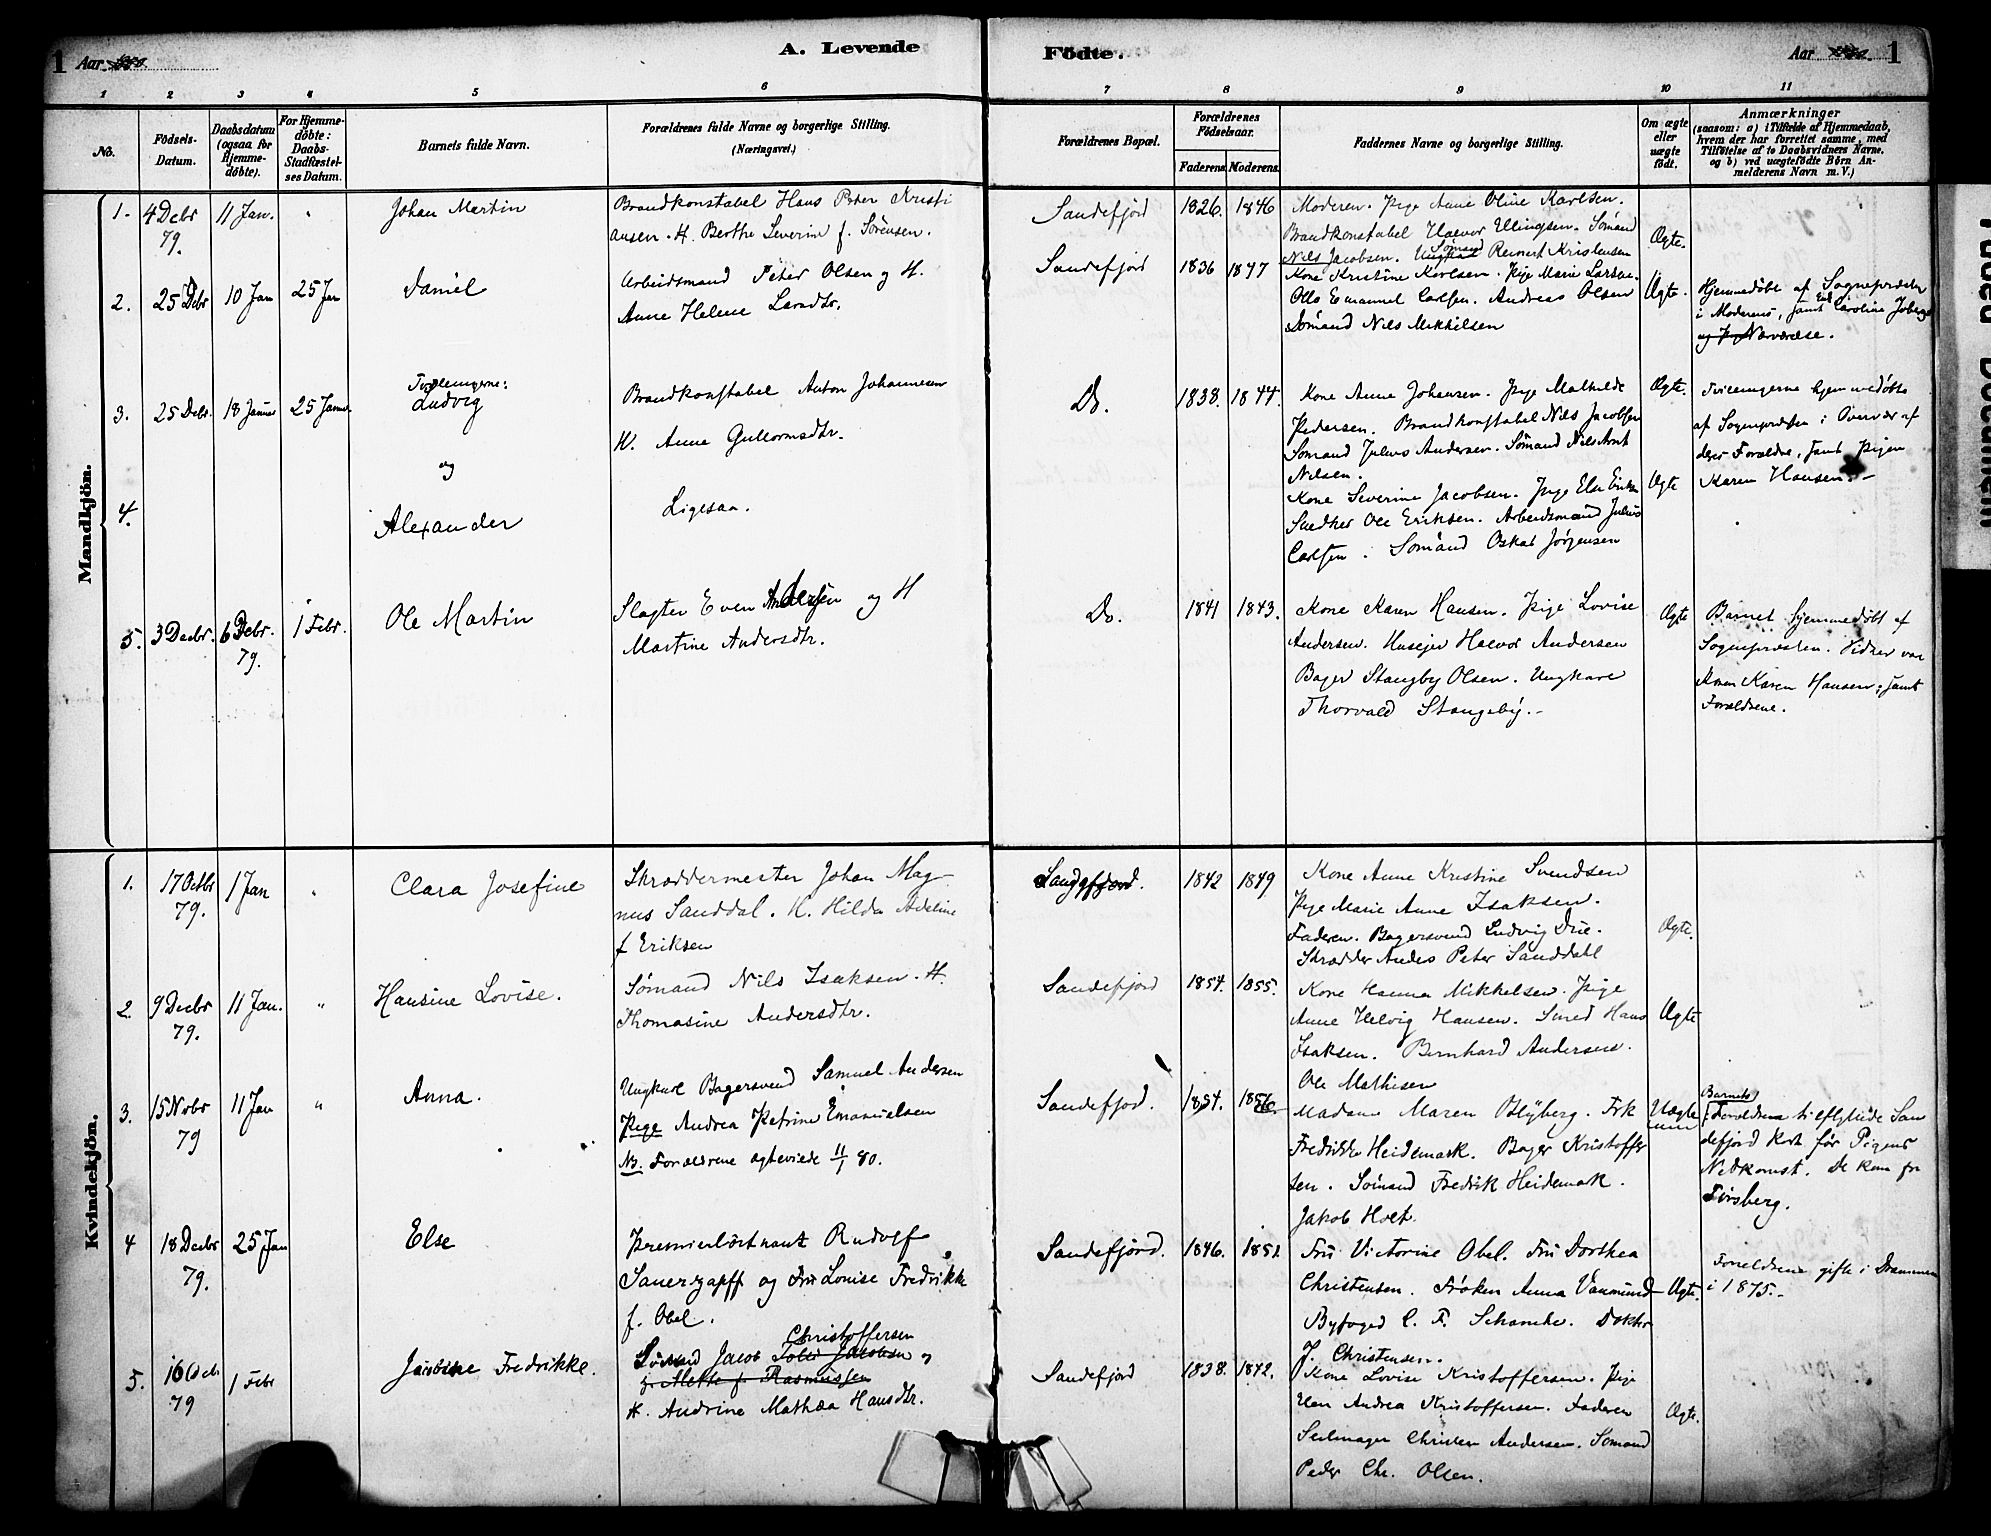 1 Aar 1880. A. Levende Födte. Aar 1880. 1
1 2 3 4 5 6 7 8 9 10 11
No.
Födsels-
Datum.
Daabsdatum
(ogsaa for
Hjemme-
döbte).
For Hjemme-
döbte:
Daabs-
Stadfæstel-
ses Datum.
Barnets fulde Navn.
Forældrenes fulde Navne og borgerlige Stilling.
(Næringsvei.)
Forældrenes Bopæl.
Forældrenes
Födselsaar.
Faderens. Moderens.
Faddernes Navne og borgerlige Stilling.
Om ægte
eller
uægte
født.
Anmærkninger
(saasom: a) i Tilfælde af Hjemmedaab,
hvem der har forrettet samme, med
Tilföielse af to Daabsvidners Navne,
og b) ved uægtefödte Börn An-
melderens Navn m. V.)
Mandkjön.
1. 4 Decbr 79. 11 Jan. "
Johan Martin
Brandkonstabel Hans Peter Kristi
ansen. H. Berthe Severine f. Sørensen.
Sandefjord 1826. 1846
Moderen. Pige Anne Oline Karlsen.
Brandkonstabel Halvor Ellingsen. Sømand
Nils Jacobsen. Ungkarl Sømand Reinert Kristensen
Ægte.
2. 25 Decbr 10 Jan 25 Jan
Daniel
Arbeidsmand Peter Olsen og H.
Anne Helene Larsdtr.
Sandefjord 1836 1847
Kone Kristine Karlsen. Pige Marie Larsen.
Otto Emanuel Carlsen. Andreas Olsen
Sømand Nils Mikkelsen
Ægte.
Hjemmedøbt af Sognepræsten
i Moderens, samt Enke Caroline
og Nærværelse.
3. 25 Decbr. 18 Januar 25 Januar.
Tvillingerne:
Ludvig
Brandkonstabel Anton Johannesen
H. Anne Gullormsdtr.
Do. 1838. 1844.
Kone Anne Johansen. Pige Mathilde
Pedersen. Brandkonstabel Nils Jacobsen
Sømand Julius Andersen. Sømand Nils Arnt
Nilsen.
Ægte.
Tvillingerne hjemmedøbte
af Sognepræsten i Overvær af
deres Forældre, samt Pigen
Karen Hansen. —
og
4.
Alexander
Ligesaa.
Kone Severine Jacobsen. Pige Else Eriksen
Snedker Ole Eriksen. Arbeidsmand Julius
Carlsen. Sømand Oskar Jørgensen
Ægte
5. 3 Decbr. 6 Decbr. 79. 1 Febr.
Ole Martin
Slagter Even Andersen og H
Martine Andersdtr.
Do. 1841 1843.
Kone Karen Hansen. Pige Lovise
Andersen. Huseier Halvor Andersen
Bager Stangby Olsen. Ungkarl
Thorvald Stangeby. —
Ægte
Barnet hjemmedøbt af
Sognepræsten. Vidner var
Karen Hansen, samt
Forældrene.
Kvindekjön.
1. 17 Octbr 79. 1 Jan "
Clara Josefine
Skræddermester Johan Mag-
nus Sanddal. H. Hilda Adeline
f Eriksen
Sandefjord. 1842 1849
Kone Anne Kristine Svendsen
Pige Marie Anne Isaksen.
Faderen. Bagersvend Ludvig Due.
Skrædder Anders Peter Sanddahl
Ægte.
2. 9 Decbr 79. 11 Jan. "
Hansine Lovise.
Sømand Nils Isaksen. H.
Thomasine Andersdtr.
Sandefjord 1854. 1855.
Kone Hanna Mikkelsen. Pige
Anne Helvig Hansen. Smed Hans
Isaksen. Bernhard Andersen.
Ole Mathisen
Ægte
3. 15 Novbr 79 11 Jan "
Anna.
Ungkarl Bagersvend Samuel Andersen
Pige Andrea Petrine Emanuelsen
NB. Forældrene ægteviede 11/1 80.
Sandefjord. 1854. 1856
Madame Maren Blyberg. Frk
Fredrikke Heidemark. Bager Kristoffer
sen. Sømand Fredrik Heidemark.
Jakob Holt.
Uægte
Barnets
Forældrene tilflyttede San
defjord kort før Pigens
Nedkomst. De kom fra
Tønsberg.
4 18 Decbr 79. 25 Jan
Else
Premierløitnant Rudolf
Sauerzapff og Fru Louise Fredrikke
f. Obel.
Sandefjord. 1846. 1851.
Fru Victorine Obel. Fru Dorthea
Christensen. Frøken Anna Vanmund
Byfoged C. F. Schanche. Doktor
J. Christensen.
Ægte.
Forældrene gifte i Drammen
i 1875. —
5. 16 79 1 Febr
Jacobine Fredrikke.
Christoffersen
Sømand Jacob Jacobsen og
Mette f. Rasmussen
H. Andrine Mathea Hansdtr.
Sandefjord 1838. 1842.
Kone Lovise Kristoffersen. Pige
Andrea Kristoffersen. Faderen
Seilmager Christen Andersen. Sømand
Peder Chr. Olsen.
Ægte.